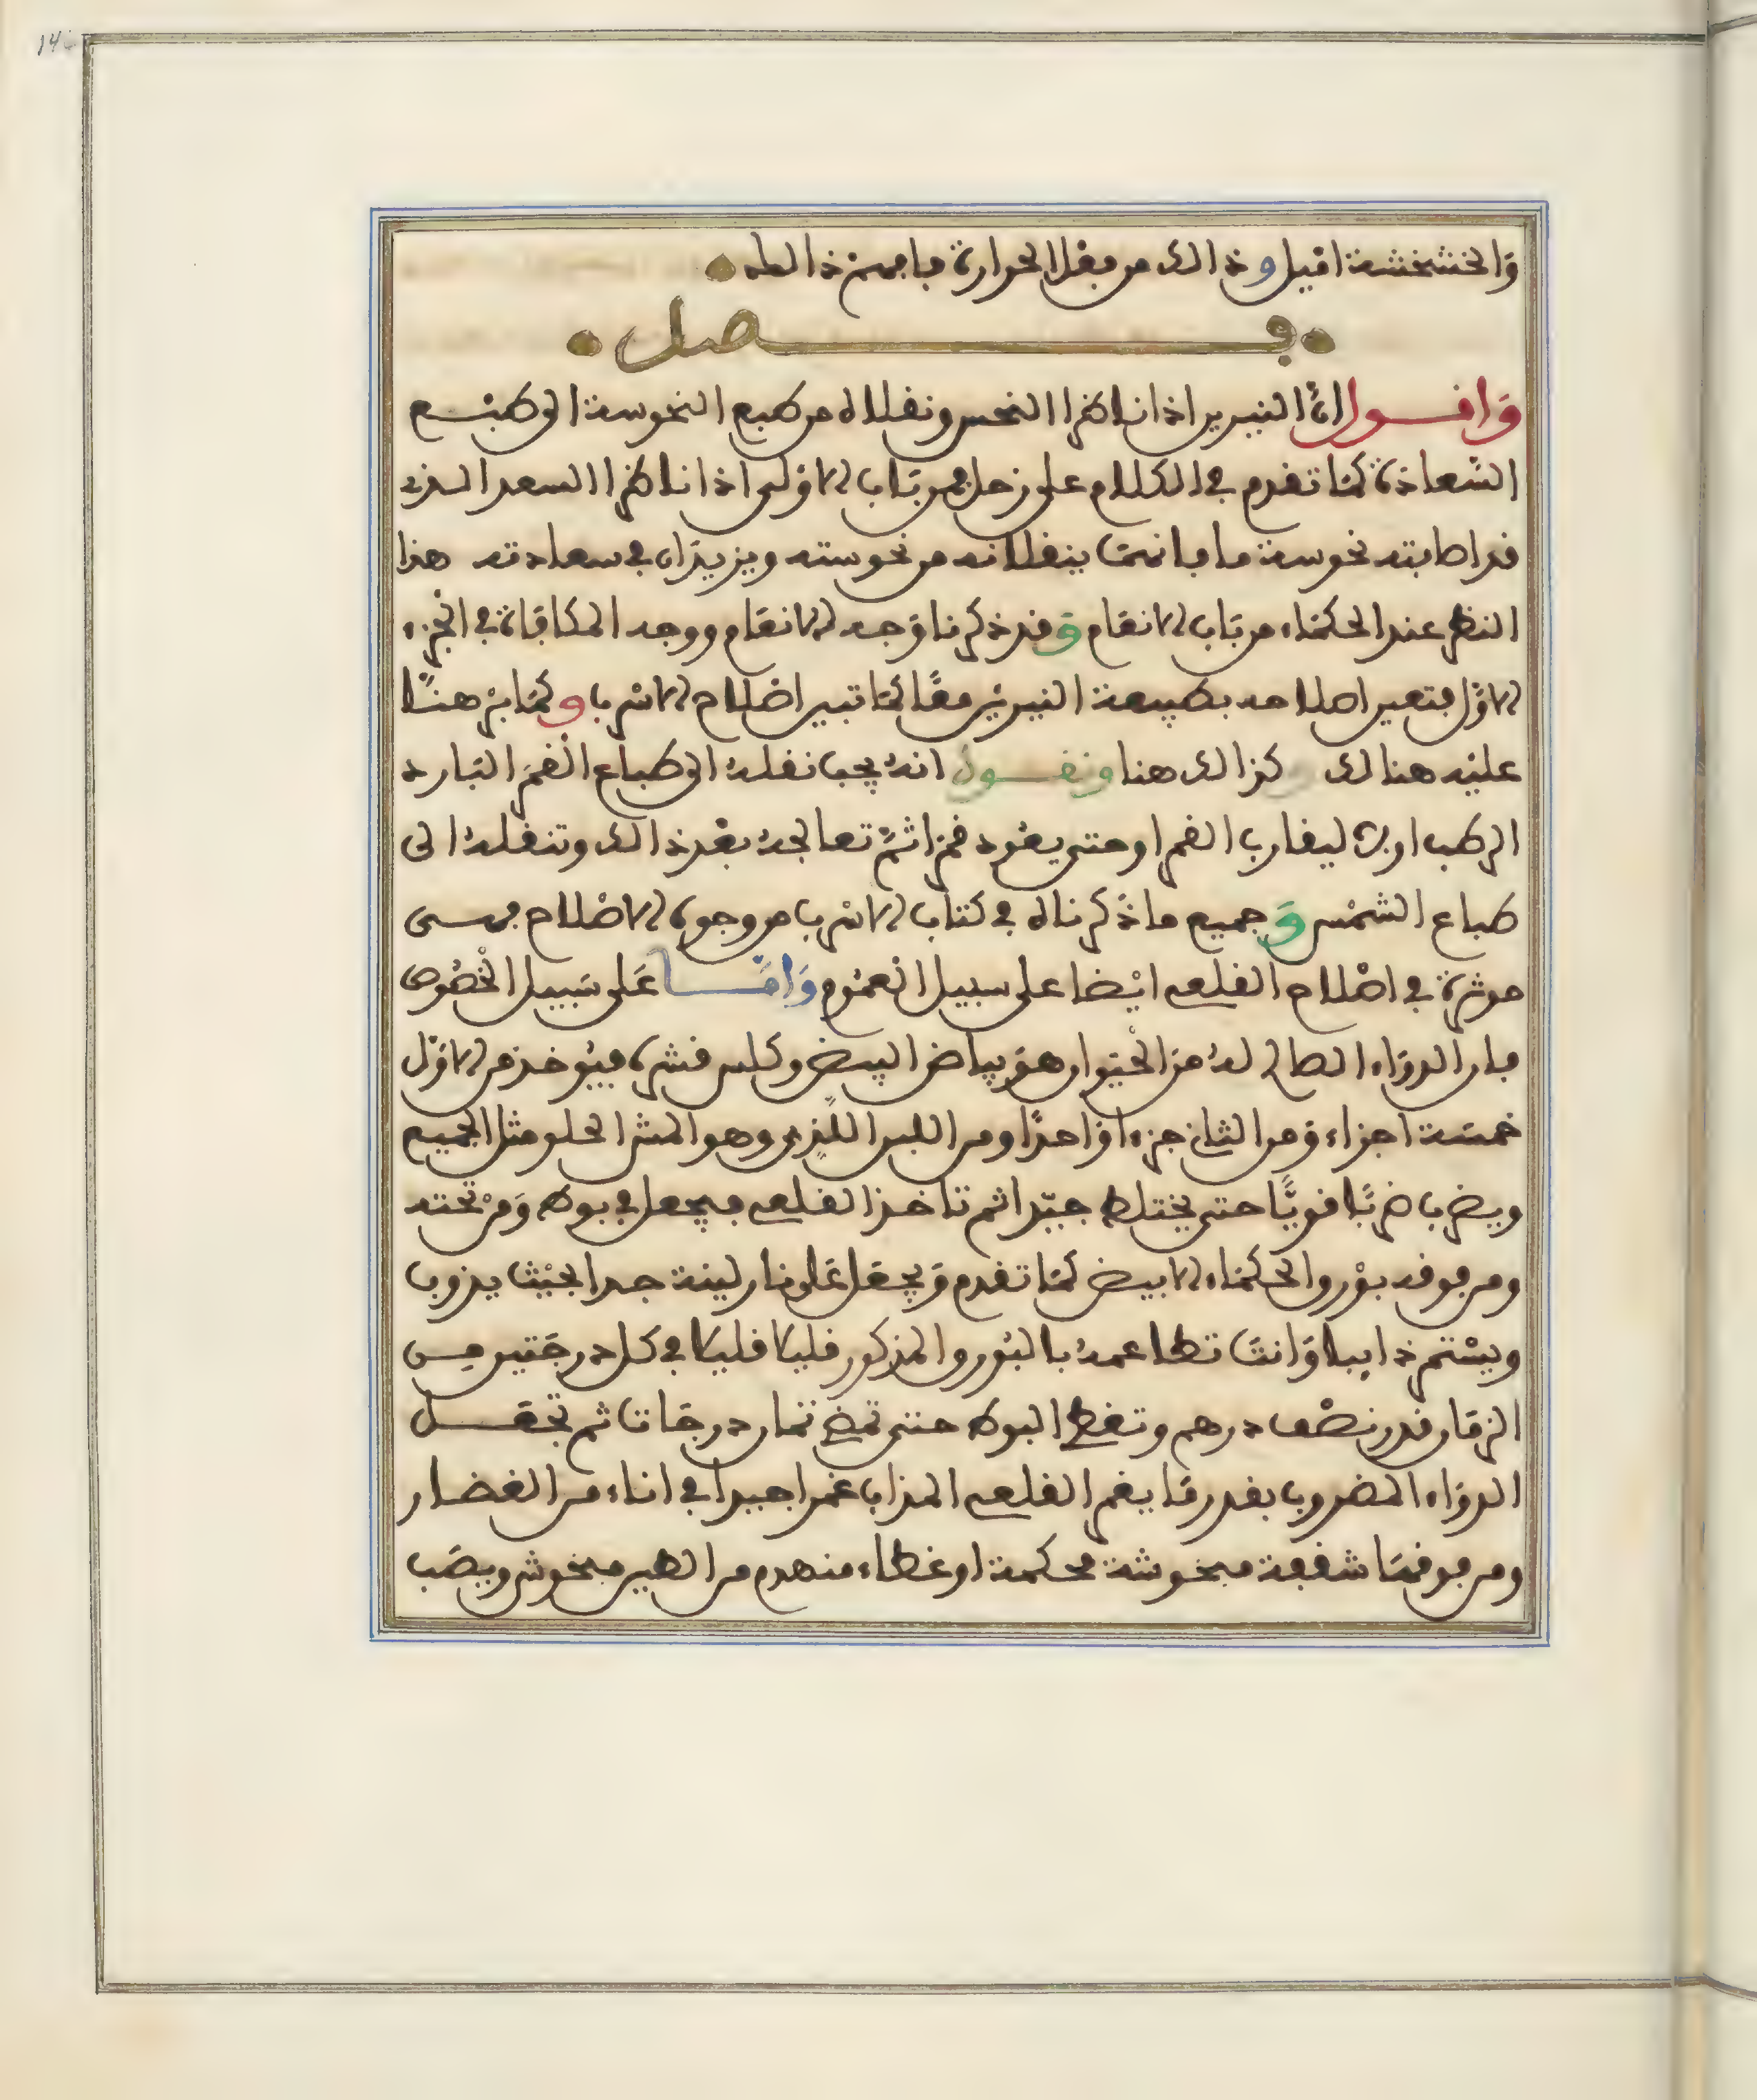 14
وَالخشخشة اقبل وذالك من فعل الحرارة فافهمن ذالك
فصل
وَاقول انّ النيرين اذا ناظرا النحس ونقلاه من طبع النحوسة الى طبع
السّعادة كمَا تقدم في الكلام على زحل فمن بَاب الاوْلى اذا ناظرا السعد الذي
قد اصابته نحوسة ما فانهمَا ينقلانه من نحوسته ويزيدَان في سعادته هذا
النظر عند الحكمَاء من بَاب الانعَام وَقد ذكرنا وَجه الانعَام ووجه المكافَاة في الجزء
الاوّل فتعين اصلاحه بطبيعة النيريْن معًا كمَا تبين اصْلاح الاسْرب وكمَا بَرْهنّا
عليْه هنالك وكذالك هنا ونقول انهُ يجب نقلهُ الى طباع القمَر البَارد
الرطب اولا ليقارب القمر اوحتى يعُود قمرا ثمّ تعالجهُ بعْد ذالك وتنقلهُ الى
طباع الشمْس وَجميع ماذكرناه في كتاب الاسْرب من وجوه الاصْلاح فهى
موثرة في اصْلاح القلعى ايْضا على سبيل العمُوم وَامّا عَلى سَبيل الخصُوص
فان الدوَاء الصالح لهُ منَ الحَيْوان هوَ بياض البيض وكلس قشره فيُوخذ من الاوَّل
خمسَة اجزاء وَمن الثانى جزءا وَاحدًا ومن اللبن اللّذِى وهو المش الحلو مثل الجميع
ويضرب ضرْبًا قويًّا حتى يختلط جيّدا ثم تاخذ القلعى فيجعل في بوط وَمنْ تحته
ومن فوقه بوْرو الحكمَاء الابيض كمَا تقدم وَيجعَل عَلى نار لينة جدا بحيْث يذوب
ويسْتمر ذايبا وَانتَ تطاعمهُ بالبُورو المذكور قليلا قليلا في كل درجَتين مِن
الزمَان قدر نصْف درهم وتغطى البوط حتى تمضى ثمان درجَات ثم تجعَل
الدوَاء المضروب بقدر مَا يغمر القلعى المذاب غمرا جيدا في اناء من الغضار
ومن فوقهَا شقفة مبخوشة محكمة اوغطاء منهدم من الطين مبخوش ويصَب